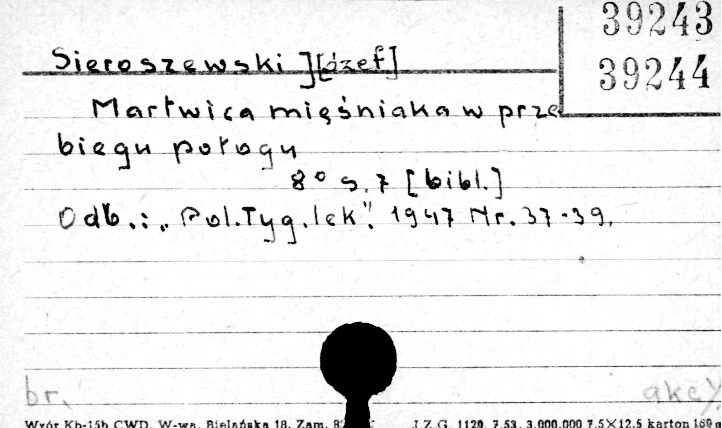 39243
39244
Sieroszewski J[ózef]
Martwica mięśniaka w prze
biegu połogu
8° s. 7 [bibl.]
Odb.: „Pol.Tyg.lek". 1947 Nr. 37-39.
br. akc
Wzór Kb-15b CWD, W-wa, Bielańska 18. Zam. J.Z.G. 1120 7.53. 3.000.000 7.5×12.5 karton 160 g